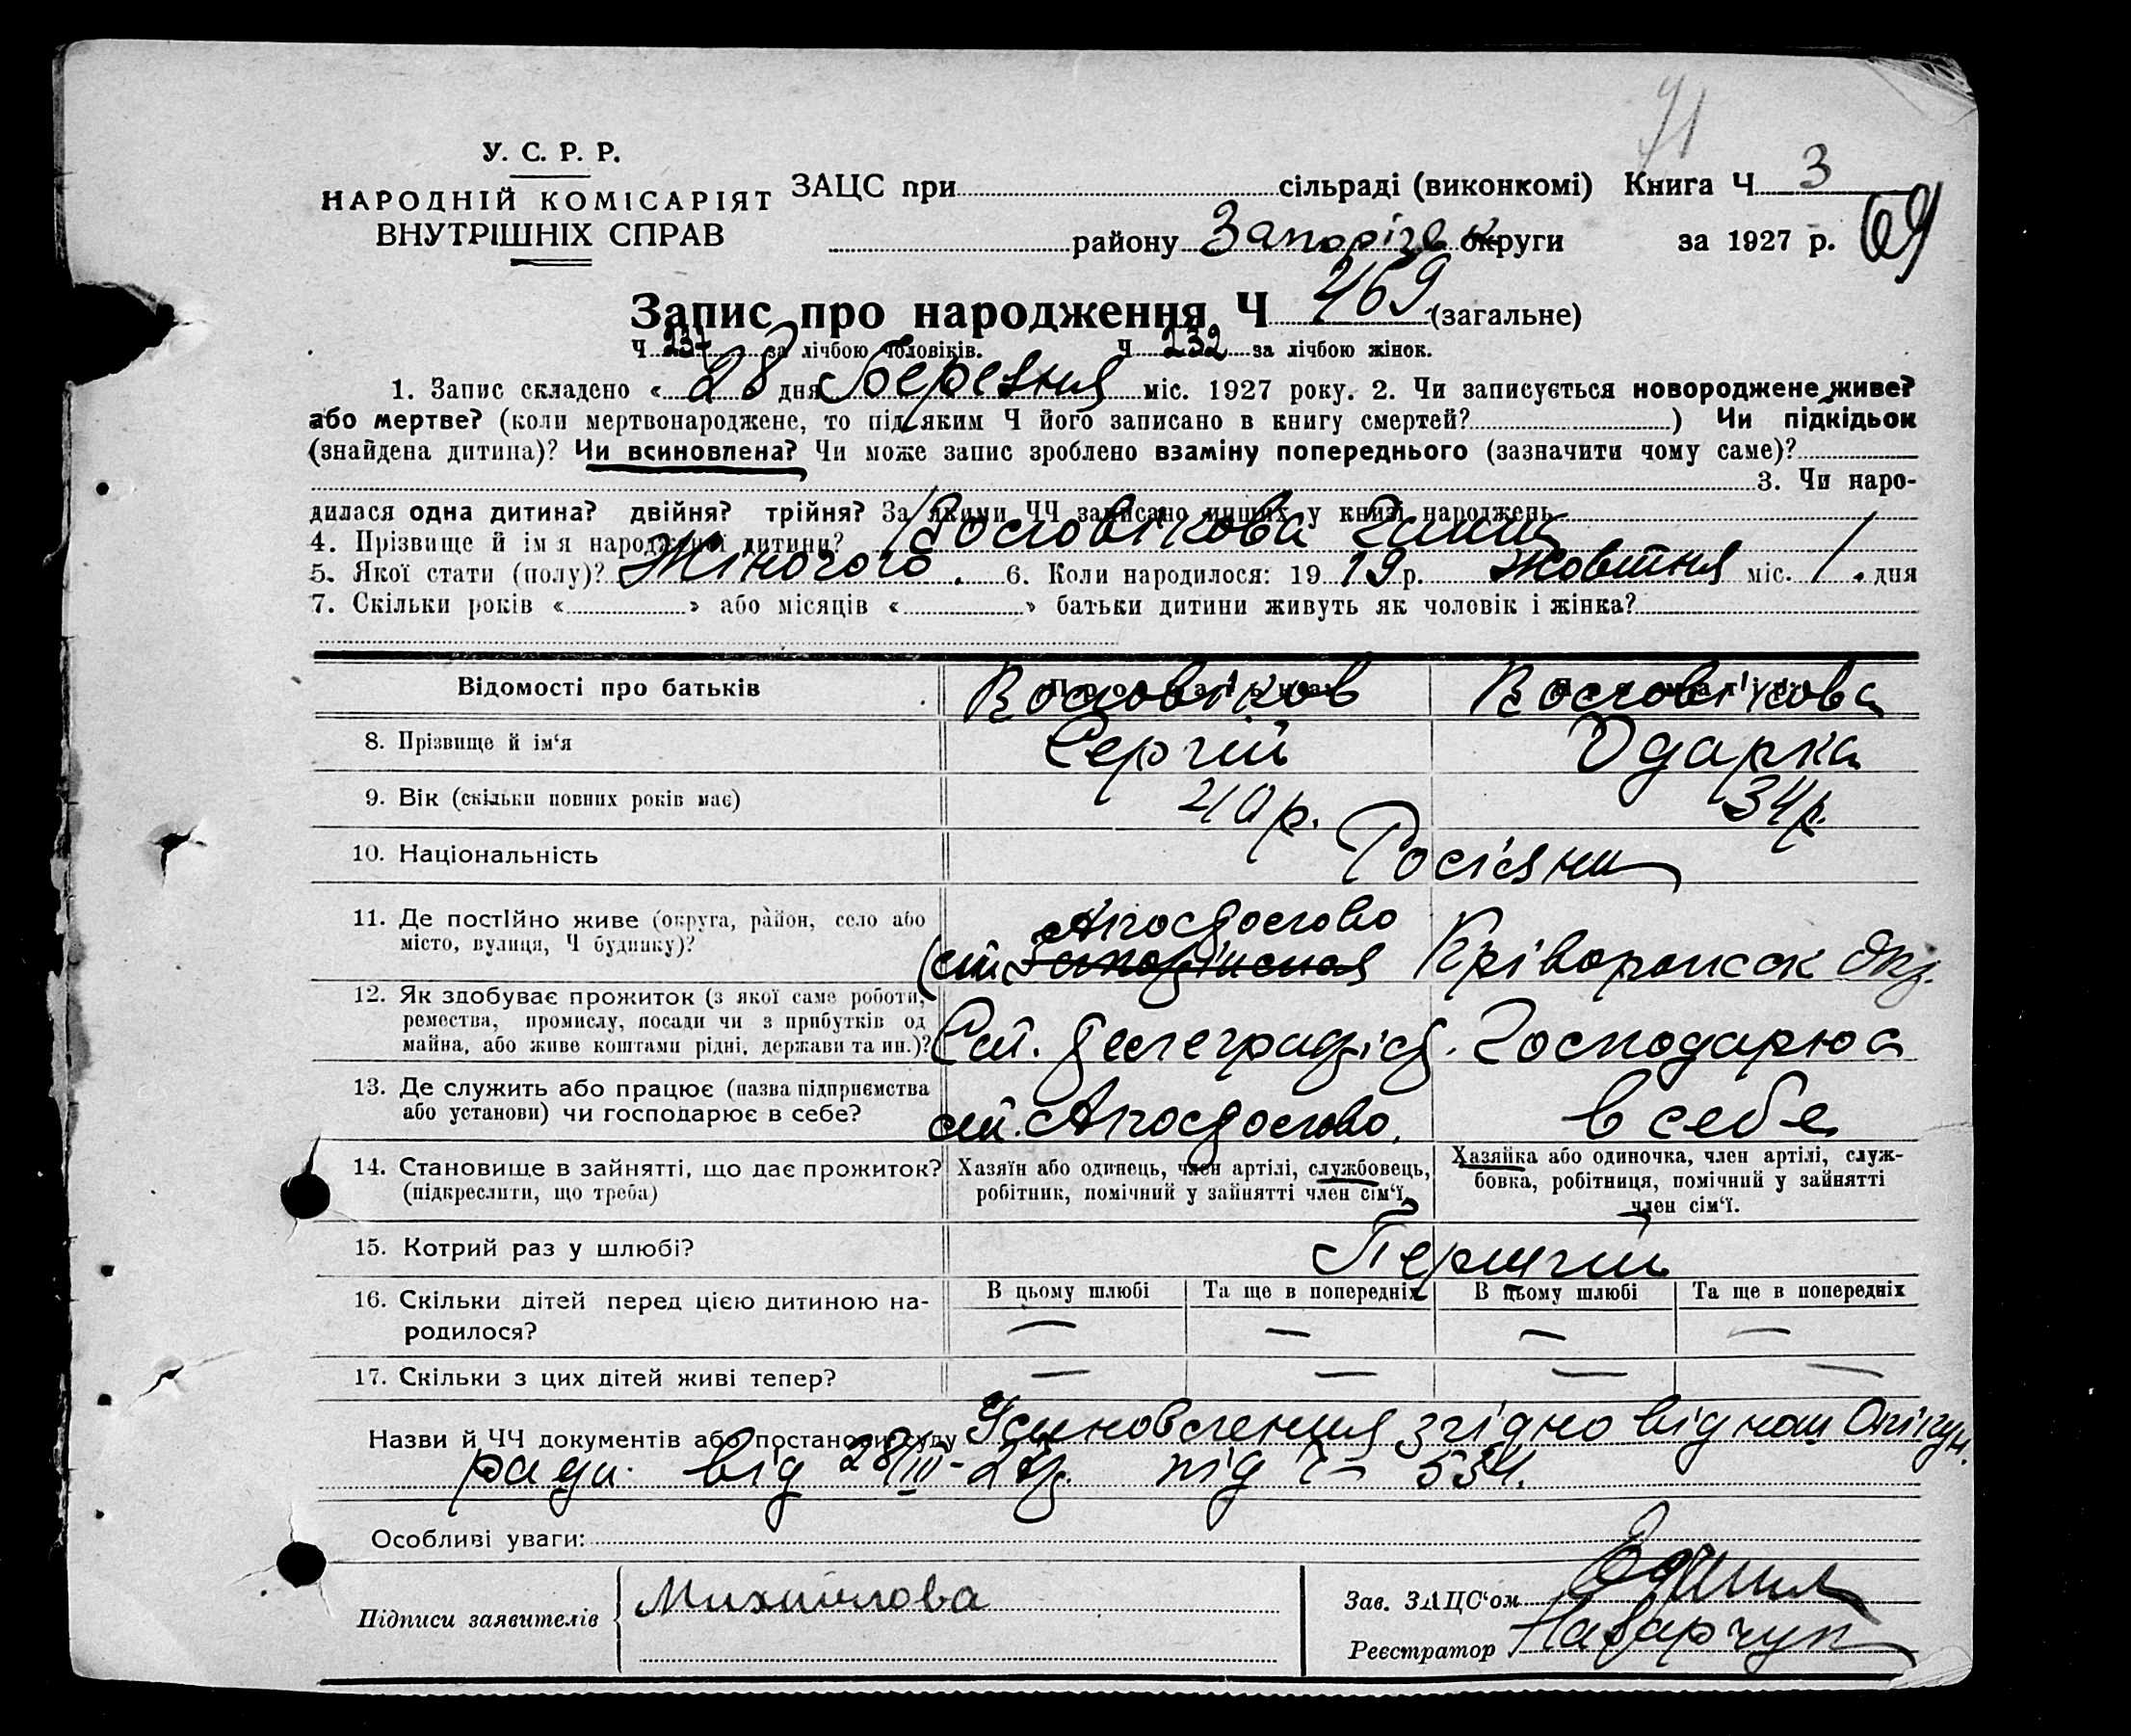 71
У. С. Р. Р.
НАРОДНІЙ КОМІСАРІЯТ
ВНУТРІШНІХ СПРАВ
ЗАЦС при сільраді (виконкомі) Книга Ч 3
району Запорізьк округи за 1927 р. 69
Запис про народження Ч 469 (загальне)
Ч 237 за лічбою чоловіків. Ч 232 за лічбою жінок.
1. Запис складено « 28 дня Березня міс. 1927 року. 2. Чи записується новороджене живе?
або мертве? (коли мертвонароджене, то під яким Ч його записано в книгу смертей? ) Чи підкідьок
(знайдена дитина)? Чи всиновлена? Чи може запис зроблено взаміну попереднього (зазначити чому саме)?
3. Чи наро-
дилася одна дитина? двійня? трійня? За якими ЧЧ записано инших у книзі народжень
4. Прізвище й ім'я народженої дитини?
5. Якої стати (полу)? Жіночого. 6. Коли народилося: 19 19 р. Жовтня міс. 1. дня
7. Скільки років « » або місяців « » батьки дитини живуть як чоловік і жінка?
Відомості про батьків
8. Прізвище й ім'я Сергій Одарка
9. Вік (скільки повних років має) 40 р. 34 р.
10. Національність Росіяни
11. Де постІйно живе (округа, район, село або Апостолово
місто, вулиця, Ч будинку)? Кріворожск Окр.
12. Як здобуває прожиток (з якої саме роботи,
ремества, промислу, посади чи з прибутків од
майна, або живе коштами рідні, держави та ин.)? Ст. телеграфіст. Господарює
13. Де служить або працює (назва підприємства
або установи) чи господарює в себе? ст. Апостолово. в себе
14. Становище в зайнятті, що дає прожиток? Хазяїн або одинець, член артілі, службовець, Хазяйка або одиночка, член артілі, служ-
(підкреслити, що треба) робітник, помічний у зайнятті член сім'ї. бовка, робітниця, помічний у зайнятті
член сім'ї.
15. Котрий раз у шлюбі? Перший
16. Скільки дітей перед цією дитиною на- В цьому шлюбі Та ще в попередніх В цьому шлюбі Та ще в попередніх
родилося? — — — —
17. Скільки з цих дітей живі тепер? — — — —
Назви й ЧЧ документів або постанови суду Усиновлення згідно віднош Опікун.
ради від 28/III-27р. під Ч 554.
Особливі уваги:
Підписи заявителів Михайлова
Зав. ЗАЦС'ом
Реєстратор